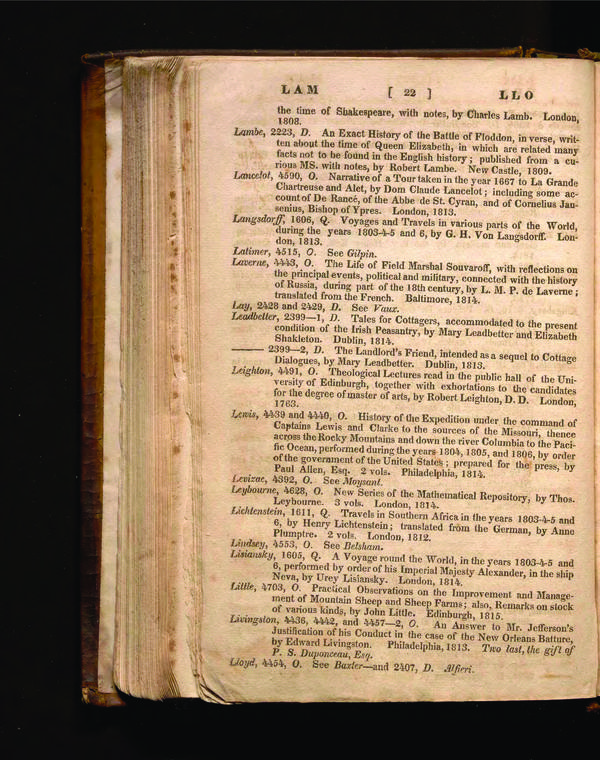 LAM [ 22 ] LLO
the time of Shakespeare, with notes, by Charles Lamb. London,
1808.
Lambe, 2223, D. An Exact History of the Battle of Floddon, in verse, writ-
ten about the time of Queen Elizabeth, in which are related many
facts not to be found in the English history; published from a cu-
rious MS. with notes, by Robert Lambe. New Castle, 1809.
Lancelot, 4590, O. Narrative of a Tour taken in the year 1667 to La Grande
Chartreuse and Alet, by Dom Claude Lancelot; including some ac-
count of De Rancé, of the Abbe de St. Cyran, and of Cornelius Jan-
senius, Bishop of Ypres. London, 1813.
Langsdorff, 1606, Q. Voyages and Travels in various parts of the World,
during the years 1803-4-5 and 6, by G. H. Von Langsdorff. Lon-
don, 1813.
Latimer, 4515, O. See Gilpin.
Laverne, 4443, O. The Life of Field Marshal Souvaroff, with reflections on
the principal events, political and military, connected with the history
of Russia, during part of the 18th century, by L. M. P. de Laverne;
translated from the French. Baltimore, 1814.
Lay, 2428 and 2429, D. See Vaux.
Leadbetter, 2399—1, D. Tales for Cottagers, accommodated to the present
condition of the Irish Peasantry, by Mary Leadbetter and Elizabeth
Shakleton. Dublin, 1814.
——— 2399—2, D. The Landlord's Friend, intended as a sequel to Cottage
Dialogues, by Mary Leadbetter. Dublin, 1813.
Leighton, 4491, O. Theological Lectures read in the public hall of the Uni-
versity of Edinburgh, together with exhortations to the candidates
for the degree of master of arts, by Robert Leighton, D. D. London,
1763.
Lewis, 4439 and 4440, O. History of the Expedition under the command of
Captains Lewis and Clarke to the sources of the Missouri, thence
across the Rocky Mountains and down the river Columbia to the Paci-
fic Ocean, performed during the years 1804, 1805, and 1806, by order
of the government of the United States; prepared for the press, by
Paul Allen, Esq. 2 vols. Philadelphia, 1814.
Levizac, 4392, O. See Moysant.
Leybourne, 4628, O. New Series of the Mathematical Repository, by Thos.
Leybourne. 3 vols. London, 1814.
Lichtenstein, 1611, Q. Travels in Southern Africa in the years 1803-4-5 and
6, by Henry Lichtenstein; translated from the German, by Anne
Plumptre. 2 vols. London, 1812.
Lindsey, 4553, O. See Belsham.
Lisiansky, 1605, Q. A Voyage round the World, in the years 1803-4-5 and
6, performed by order of his Imperial Majesty Alexander, in the ship
Neva, by Urey Lisiansky. London, 1814.
Little, 4703, O. Practical Observations on the Improvement and Manage-
ment of Mountain Sheep and Sheep Farms; also, Remarks on stock
of various kinds, by John Little. Edinburgh, 1815.
Livingston, 4436, 4442, and 4457—2, O. An Answer to Mr. Jefferson's
Justification of his Conduct in the case of the New Orleans Batture,
by Edward Livingston. Philadelphia, 1813. Two last, the gift of
P. S. Duponceau, Esq.
Lloyd, 4454, O. See Baxter—and 2407, D. Alfieri.